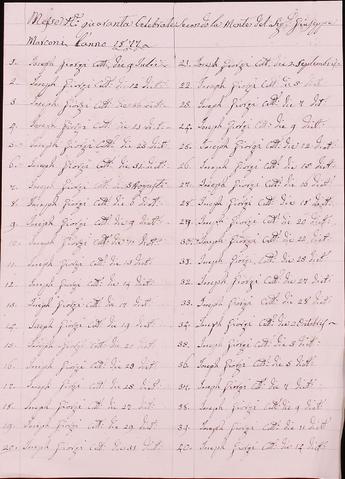 Messe No. quaranta Celebrate Secondo la Mente del Sig. Giuseppe
Marconi l'anno 1877
1. Joseph Giorgi Cott: die 9 Julii
2. Joseph Giorgi Cott: die 12 dict:
3. Joseph Giorgi Cott: die dict:
4. Joseph Giorgi Cott: die dict:
5. Joseph Giorgi Cott: die 28 dict:
6. Joseph Giorgi Cott: die 31 dict:
7. Joseph Giorgi Cott: die Augusti
8. Joseph Giorgi Cott: die 6 dict:
9. Joseph Giorgi Cott: die 9 dict:
10. Joseph Giorgi Cott: die 11 dict:
11. Joseph Giorgi Cott: die 13 dict:
12. Joseph Giorgi Cott: die 14 dict:
13. Joseph Giorgi Cott: die 17 dict:
14. Joseph Giorgi Cott: die 19 dict:
15. Joseph Giorgi Cott: die 21 dict:
16. Joseph Giorgi Cott: die 23 dict:
17. Joseph Giorgi Cott: die 25 dict:
18. Joseph Giorgi Cott: die 27 dict:
19. Joseph Giorgi Cott: die 29 dict:
20. Joseph Giorgi Cott: die 31 dict:
21. Joseph Giorgi Cott: die 2 Septembris
22. Joseph Giorgi Cott: die 5 dict:
23. Joseph Giorgi Cott: die 7 dict:
24. Joseph Giorgi Cott: die 9 dict:
25. Joseph Giorgi Cott: die 12 dict:
26. Joseph Giorgi Cott: die 15 dict:
27. Joseph Giorgi Cott: die 16 dict:
28. Joseph Giorgi Cott: die 18 dict:
29. Joseph Giorgi Cott: die 20 dict:
30. Joseph Giorgi Cott: die 22 dict:
31. Joseph Giorgi Cott: die 25 dict:
32. Joseph Giorgi Cott: die 27 dict:
33. Joseph Giorgi Cott: die 28 dict:
34. Joseph Giorgi Cott: die 2 Octobris
35. Joseph Giorgi Cott: die 3 dict:
36. Joseph Giorgi Cott: die 5 dict:
37. Joseph Giorgi Cott: die 7 dict:
38. Joseph Giorgi Cott: die 9 dict:
39. Joseph Giorgi Cott: die 11 dict:
40. Joseph Giorgi Cott: die 12 dict: